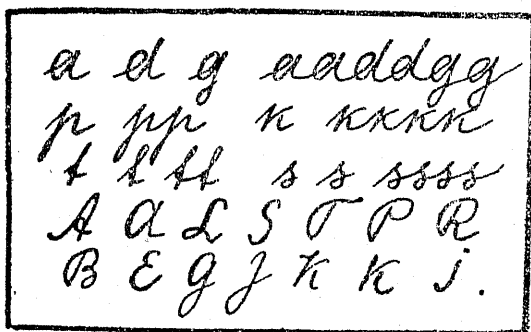 a d g aaddgg
p pp k kkkk
t t tt s s ssss
A a L S T P R
B E G J K K j.